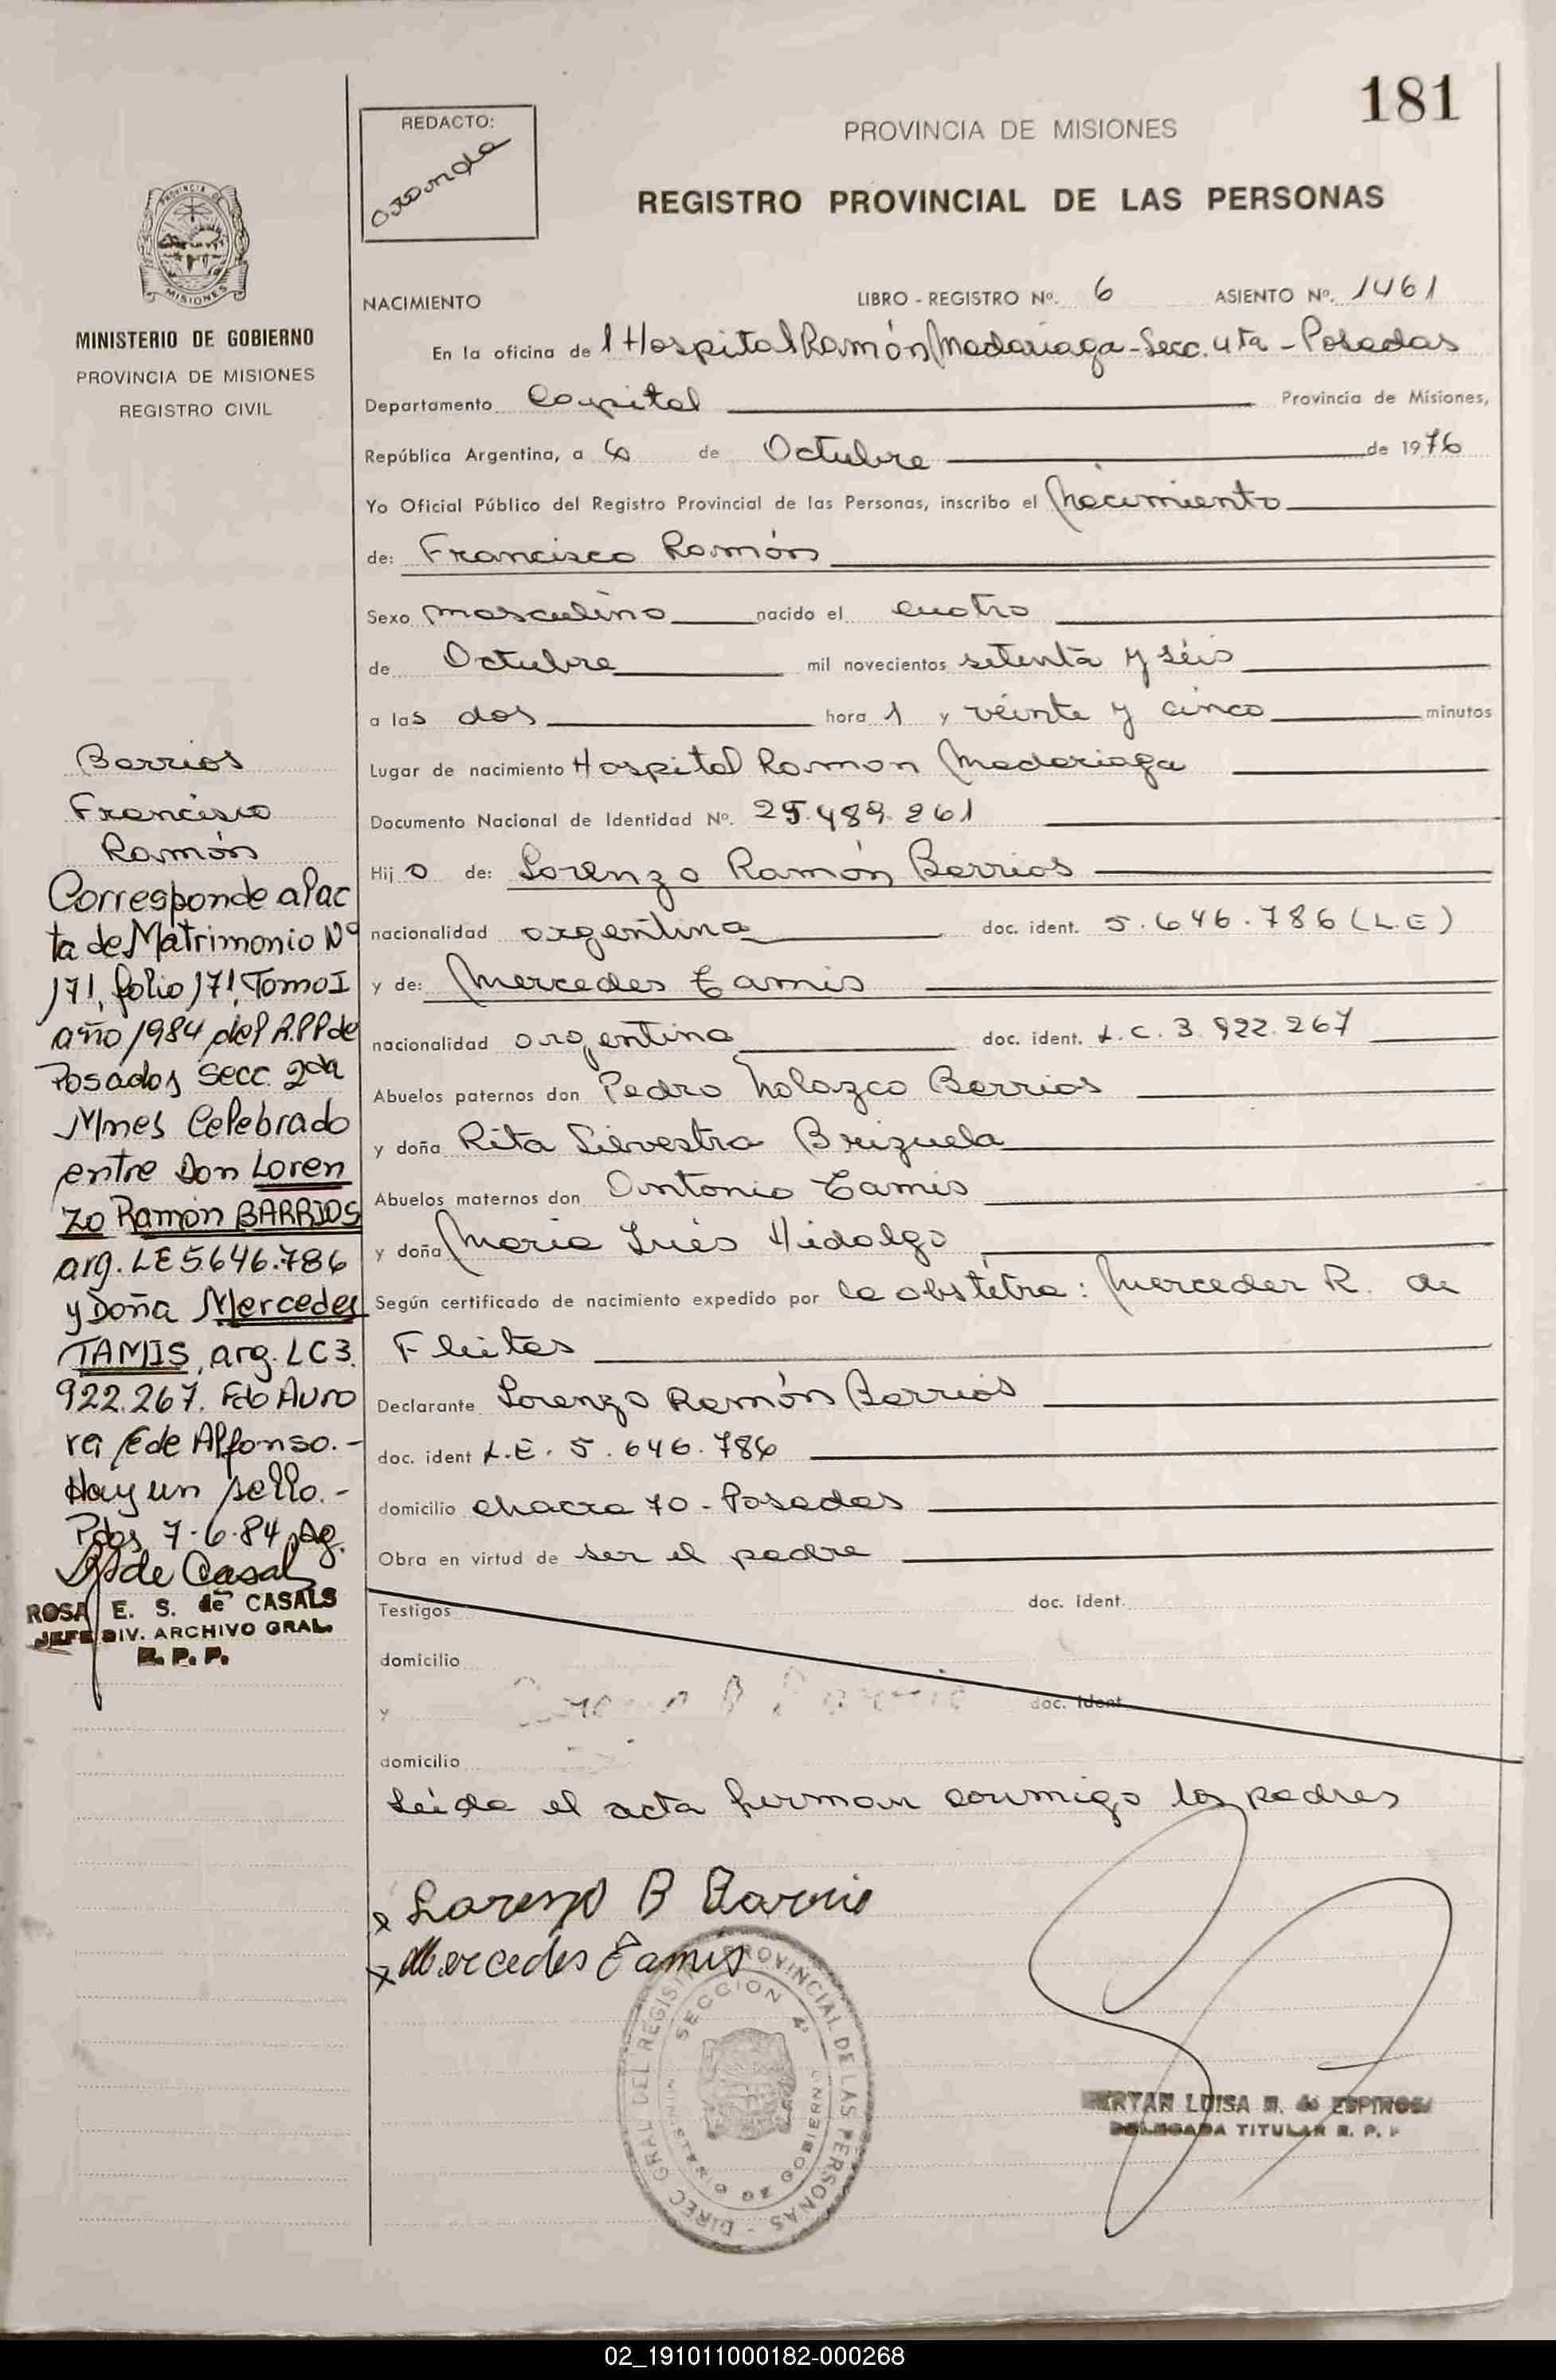 181
REDACTO:
PROVINCIA DE MISIONES
REGISTRO PROVINCIAL DE LAS PERSONAS
PROVINCIA DE
MISIONES
MINISTERIO DE GOBIERNO
PROVINCIA DE MISIONES
REGISTRO CIVIL
NACIMIENTO LIBRO - REGISTRO Nº. 6 ASIENTO Nº. 1461
En la oficina de l Hospital Ramón Madariaga - Secc. 4ta - Posadas
Departamento Capital Provincia de Misiones,
República Argentina, a 6 de Octubre de 1976
Yo Oficial Público del Registro Provincial de las Personas, inscribo el Nacimiento
de: Francisco Ramón
Sexo masculino nacido el cuatro
de Octubre mil novecientos setenta y séis
a las dos hora 1 y véinte y cinco minutos
Lugar de nacimiento Hospital Ramon Madariaga
Documento Nacional de Identidad Nº. 25.489.261
Hij o de: Lorenzo Ramón Barrios
nacionalidad argentina doc. ident. 5.646.786 (L.E)
y de: Mercedes Tamis
nacionalidad argentina doc. ident. L.C. 3.922.267
Abuelos paternos don Pedro Nolazco Barrios
y doña Rita Silvestra Brizuela
Abuelos maternos don Antonio Tamis
y doña Maria Inés Hidalgo
Según certificado de nacimiento expedido por la obstétra: Mercedes R. de
Fleitas
Declarante Lorenzo Ramón Barrios
doc. ident L.E. 5.646.786
domicilio chacra 70 - Posadas
Obra en virtud de ser el padre
Testigos doc. ident.
domicilio
y doc. ident
domicilio
Leida el acta firman conmigo los padres
x Lorenzo B Barrio
x Mercedes Tamis
DIREC GRAL DEL REGISTRO PROVINCIAL DE LAS PERSONAS
SECCION 4ª
MINISTERIO DE GOBIERNO
LUISA de ESPINOSA
DELEGADA TITULAR R. P. P
Barrios
Francisco
Ramón
Corresponde al ac
ta de Matrimonio Nº
171, folio 171, Tomo I
año 1984 del R.P.P de
Posadas Secc. 2da
Mnes Celebrado
entre Don Loren
zo Ramón BARRIOS
arg. LE 5646.786
y Doña Mercedes
TAMIS, arg. LC 3.
922.267. Fdo Auro
ra E de Alfonso.-
Hay un sello.-
Pdas 7-6-84 Ag.
de Casals
ROSA E. S. de CASALS
JEFE DIV. ARCHIVO GRAL.
R. P. P.
02_191011000182-000268